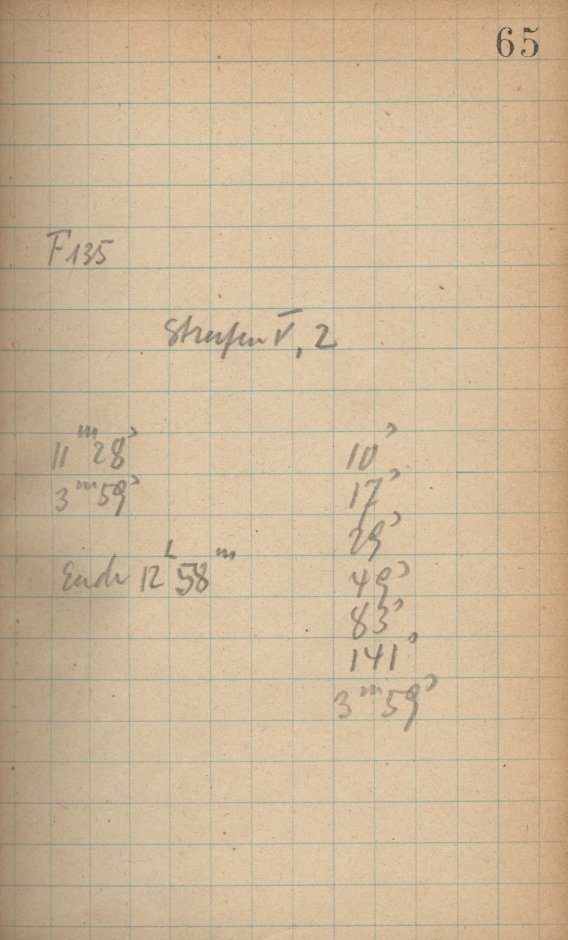 65
F 135
Streifen V, 2
11ᵐ 28ˢ
3ᵐ 59ˢ
Ende 12ʰ 58ᵐ
10ˢ
17ˢ
29ˢ
49ˢ
83ˢ
141ˢ
3ᵐ 59ˢ